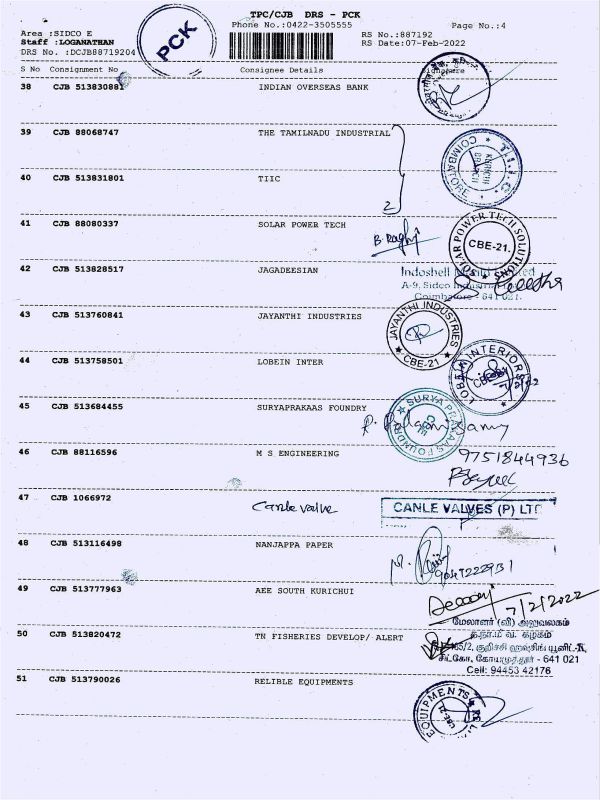 TPC/CJB DRS - PCK
Phone No.:0422-3505555
Page No.:4
Area :SIDCO E
Staff :LOGANATHAN
DRS No. :DCJB88719204
PCK
RS No.:887192
RS Date:07-Feb-2022
S No Consignment No Consignee Details Signature
38 CJB 513830881 INDIAN OVERSEAS BANK
39 CJB 88068747 THE TAMILNADU INDUSTRIAL
COIMBATORE T.I.I.C. KURICHI BRANCH
40 CJB 513831801 TIIC
2
41 CJB 88080337 SOLAR POWER TECH
B. Raghu
SOLAR POWER TECH SOLUTIONS CBE-21.
42 CJB 513828517 JAGADEESIAN
Indoshell
A-9, Sidco
Coimbatore - 641 021.
43 CJB 513760841 JAYANTHI INDUSTRIES
JAYANTHI INDUSTRIES CBE-21
44 CJB 513758501 LOBEIN INTER
LOBEIN INTERIORS
45 CJB 513684455 SURYAPRAKAAS FOUNDRY
SURYA PRAKAAS FOUNDRY
P. Palanisamy
46 CJB 88116596 M S ENGINEERING
9751844936
47 CJB 1066972 Canle valve
CANLE VALVES (P) LTD
48 CJB 513116498 NANJAPPA PAPER
49 CJB 513777963 AEE SOUTH KURICHUI
7/2/2022
மேலாளர் (வி) அலுவலகம்
50 CJB 513820472 TN FISHERIES DEVELOP/ ALERT
த.நா.மீ.வ. கழகம்
குறிச்சி ஹவுசிங் யூனிட்-II,
சிட்கோ, கோயமுத்தூர் - 641 021
Cell: 94453 42176
51 CJB 513790026 RELIBLE EQUIPMENTS
EQUIPMENTS